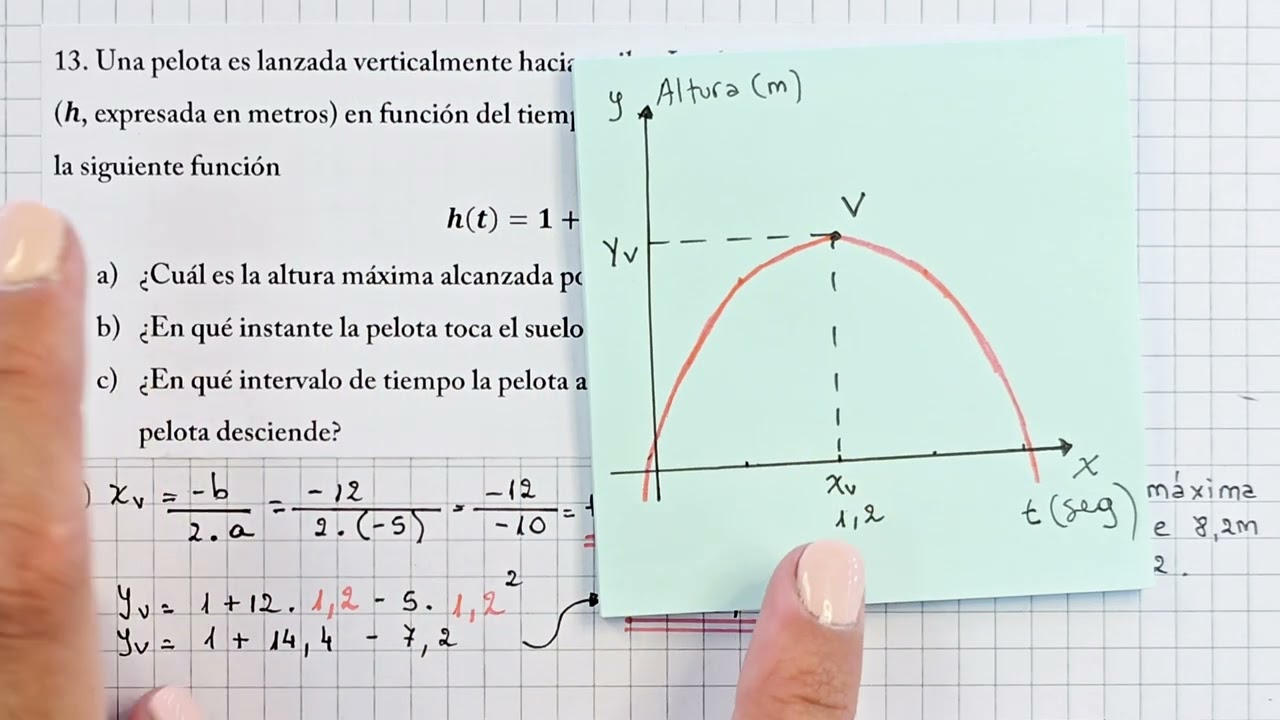 13. Una pelota es lanzada verticalmente hacia
(h, expresada en metros) en función del tiem
la siguiente función
h(t) = 1 +
a) ¿Cuál es la altura máxima alcanzada
b) ¿En qué instante la pelota toca el suelo
c) ¿En qué intervalo de tiempo la pelota a
pelota desciende?
y Altura (m)
V
Yv
xv
1,2
x
t (seg)
) xv = -b / 2.a = -12 / 2.(-5) = -12 / -10 = +
yv = 1 + 12 . 1,2 - 5 . 1,2²
yv = 1 + 14,4 - 7,2
máxima
e 8,2m
2.